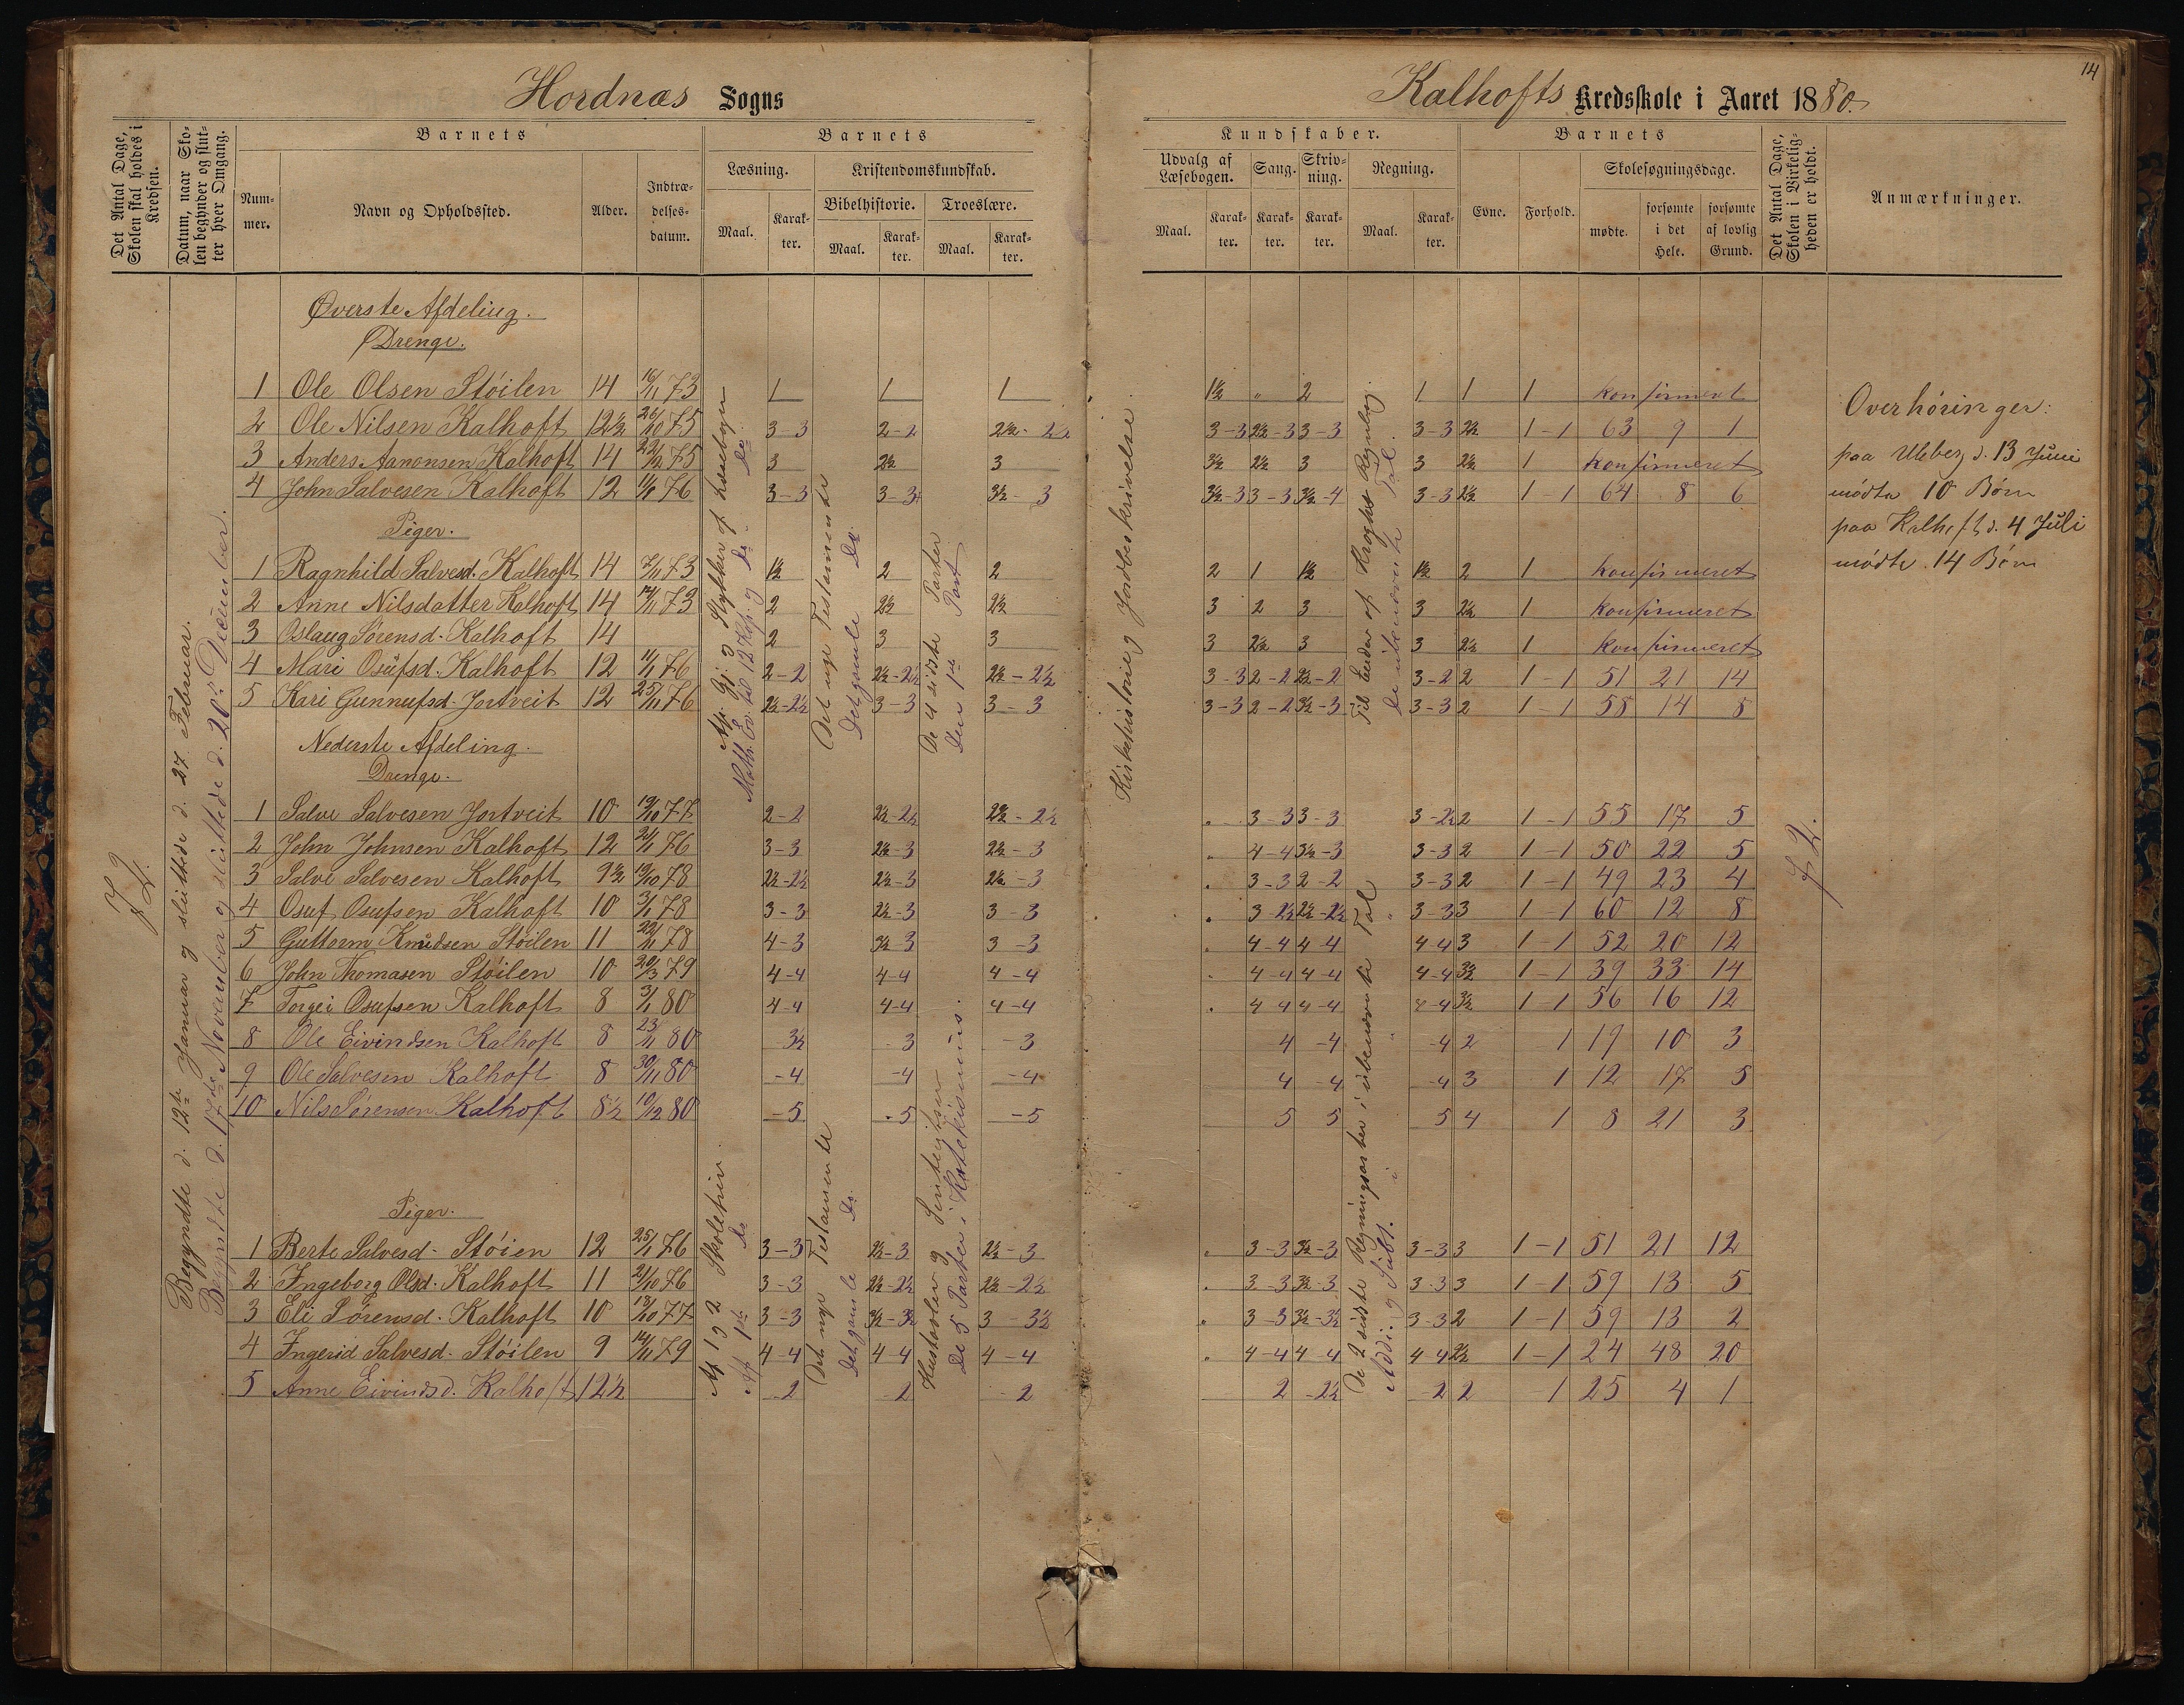 14
Hordnæs Sogns
Kalhofts Kredsskole i Aaret 1880.
Det Antal Dage, Skolen skal holdes i Kredsen.
Datum, naar Skolen begynder og slutter hver Omgang.
Barnets
Nummer.
Navn og Opholdssted.
Alder.
Indtrædelsesdatum.
Barnets
Læsning.
Maal.
Karakter.
Kristendomskundskab.
Bibelhistorie.
Maal.
Karakter.
Troeslære.
Maal.
Karakter.
Kundskaber.
Udvalg af Læsebogen.
Maal.
Karakter.
Sang.
Karakter.
Skrivning.
Karakter.
Regning.
Maal.
Karakter.
Barnets
Evne.
Forhold.
Skolesøgningsdage.
mødte.
forsømte i det Hele.
forsømte af lovlig Grund.
Det Antal Dage, Skolen i Virkeligheden er holdt.
Anmærkninger.
72.
Begyndte d. 12te Januar og sluttede d. 27. Februar.
Begyndte d. 17de November og sluttede d. 20de December.
Øverste Afdeling.
Drenge.
1 Ole Olsen Stöilen 14 16/11 73 1 1 1 1½ " 2 1 1 1 konfirmeret
2 Ole Nilsen Kalhoft 12½ 26/10 75 3-3 2-2 2½-2½ 3-3 2½-3 3-3 3-3 2½ 1-1 63 9 1
3 Anders Aanonsen Kalhoft 14 22/12 75 3 2½ 3 3½ 2½ 3 3 2½ 1 konfirmeret
4 John Salvesen Kalhoft 12 11/1 76 3-3 3-3 3½-3 3½-3 3-3 3½-4 3-3 2½ 1-1 64 8 6
Piger.
1 Ragnhild Salvesd. Kalhoft 14 7/11 73 1½ 2 2 2 1 1½ 1½ 2 1 konfirmeret
2 Anne Nilsdatter Kalhoft 14 14/11 73 2 2½ 2½ 3 2 3 3 2½ 1 konfirmeret
3 Oslaug Sørensd. Kalhoft 14 2 3 3 3 2½ 3 3 2½ 1 konfirmeret
4 Mari Osufsd. Kalhoft 12 11/1 76 2-2 2½-2½ 2½-2½ 3-3 2-2 2½-2 3-2 2 1-1 51 21 14
5 Kari Gunnufsd. Jortveit 12 25/11 76 2½-2½ 3-3 3-3 3-3 2-2 3½-3 3-3 2 1-1 58 14 8
Det nye Testamente
Det gamle Do.
De 4 sidste Parter
Den 1ste Part
Kirkehistorie og Jordbeskrivelse.
Til Enden af Kroghs Regnebog.
De ubenævnte Tal.
Nederste Afdeling.
Drenge.
1 Salve Salvesen Jortveit 10 19/10 77 2-2 2½-2½ 2½-2½ " 3-3 3-3 3-2½ 2 1-1 55 17 5
2 John Johnsen Kalhoft 12 24/1 76 3-3 2½-3 2½-3 " 4-4 3½-3 3-3 2 1-1 50 22 5
3 Salve Salvesen Kalhoft 9½ 19/10 78 2½-2½ 2½-3 2½-3 " 3-3 2-2 3-3 2 1-1 49 23 4
4 Osuf Osufsen Kalhoft 10 3/1 78 3-3 2½-3 3-3 " 3-2½ 2½-2½ 3-3 3 1-1 60 12 8
5 Guttorm Knudsen Stöilen 11 22/11 78 4-3 3½-3 3-3 " 4-4 4-4 4-4 3 1-1 52 20 12
6 John Thomasen Stöilen 10 20/3 79 4-4 4-4 4-4 " 4-4 4-4 4-4 3½ 1-1 39 33 14
7 Torgei Osufsen Kalhoft 8 3/1 80 4-4 4-4 4-4 " 4-4 4-4 4-4 3½ 1-1 56 16 12
8 Ole Eivindsen Kalhoft 8 23/11 80 3½ -3 -3 4 -4 -4 2 1 19 10 3
9 Ole Salvesen Kalhoft 8 30/11 80 -4 -4 -4 4 -4 -4 3 1 12 17 5
10 Nils Sørensen Kalhoft 8½ 10/12 80 -5 -5 -5 5 5 5 4 1 8 21 3
Piger.
1 Berte Salvesd. Stöien 12 25/1 76 3-3 2½-3 2½-3 " 3-3 3½-3 3-3 3 1-1 51 21 12
2 Ingeborg Olsd. Kalhoft 11 21/10 76 3-3 2½-2½ 2½-2½ " 3-3 3½-3 3-3 3 1-1 59 13 5
3 Eli Sørensd. Kalhoft 10 18/10 77 3-3 3½-3½ 3 3½ " 3-3 3½-3½ 3-3 2 1-1 59 13 2
4 Ingerid Salvesd. Stöilen 9 14/11 79 4-4 4-4 4-4 " 4-4 4-4 4-4 2½ 1-1 24 48 20
5 Anne Eivindsd. Kalhoft 12½ -2 -2 -2 2 -2½ -2 2 -1 25 4 1
Af 1 og 2 Skoletrin
Af 1ste do
Det nye Testamente
Det gamle Do.
Hustavlen og
De 5 Parter i Katekismus.
De 2 sidste Regningsarter i ubenævnte Tal
Addi. og Subt. i " "
72.
Overhöringer:
paa Ubberg d. 13 Juni
mödte 10 Børn
paa Kalhoft d. 4 Juli
mödte 14 Børn